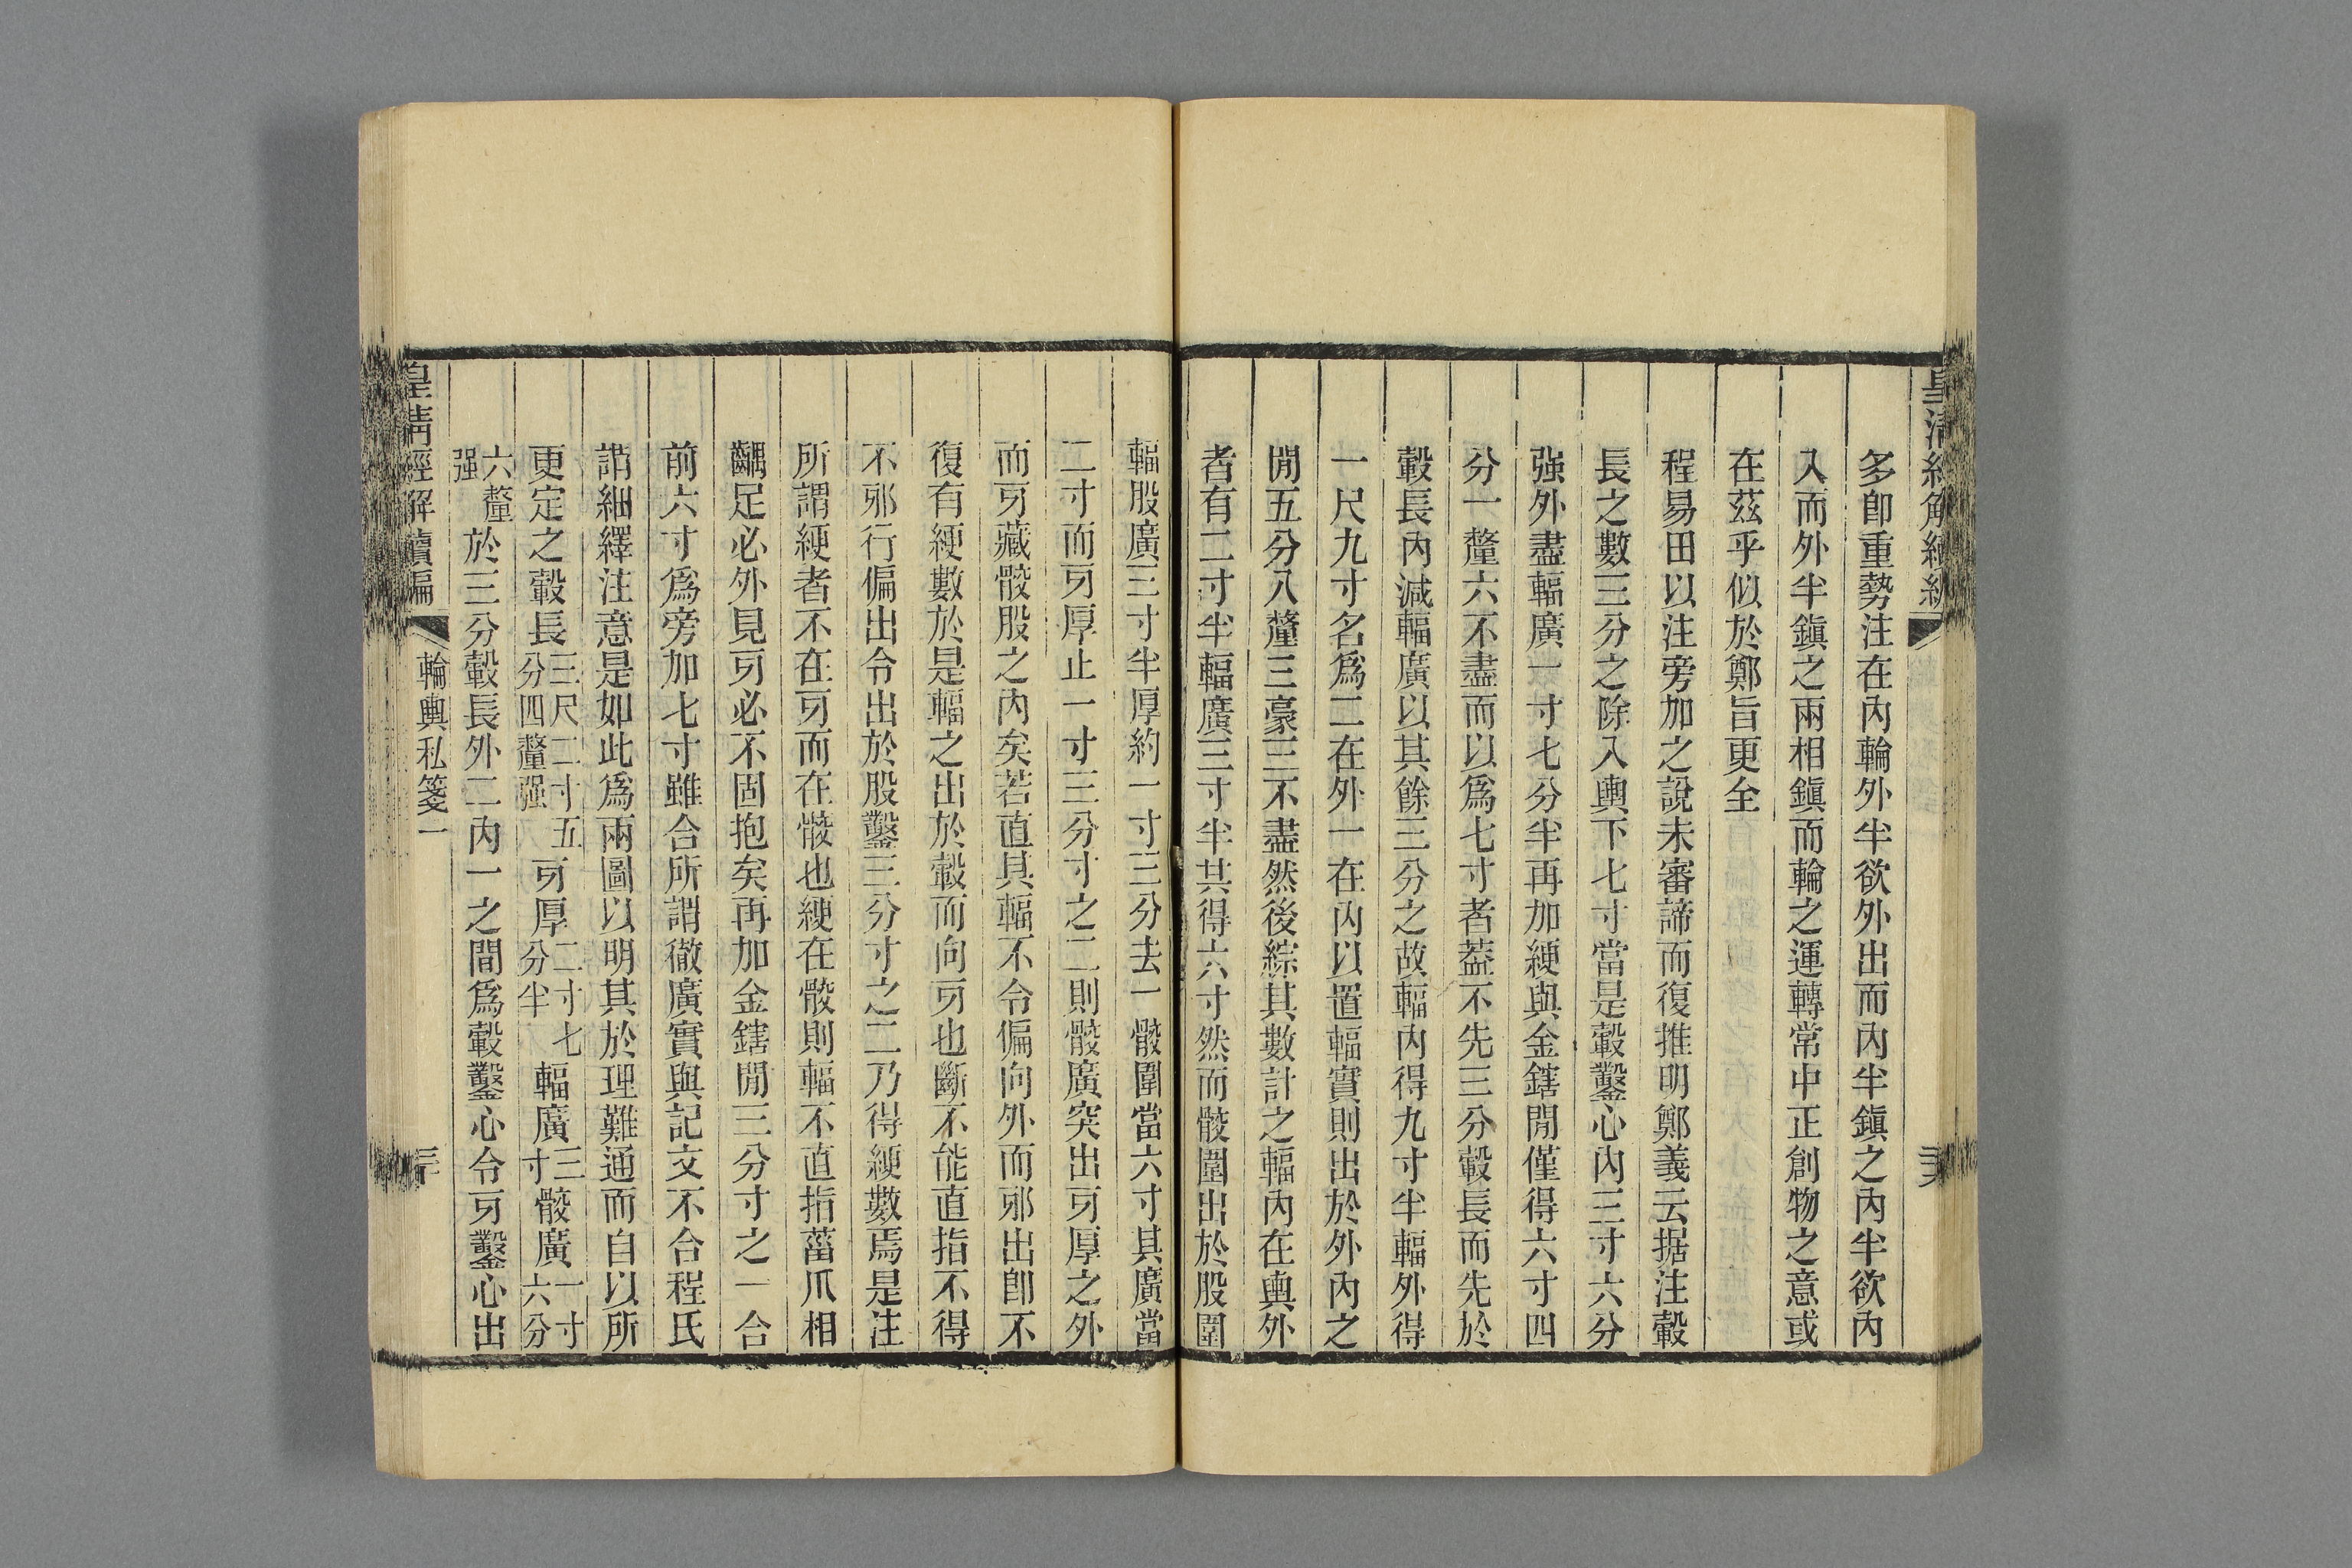 多卽重勢注在內輪外半欲外出而內半鎭之內半欲內
入而外半鎭之兩相鎭而輪之運轉常中正創物之意或
在茲乎似於鄭旨更全
程易田以注旁加之說未審諦而復推明鄭義云据注轂
長之數三分之除入輿下七寸當是轂鑿心內三寸六分
强外盡輻廣一寸七分半再加綆與金鎋閒僅得六寸四
分一釐六不盡而以爲七寸者葢不先三分轂長而先於
轂長內減輻廣以其餘三分之故輻內得九寸半輻外得
一尺九寸名爲二在外一在內以置輻實則出於外內之
閒五分八釐三豪三不盡然後綜其數計之輻內在輿外
者有二寸半輻廣三寸半共得六寸然而骹圍出於股圍
輻股廣三寸半厚約一寸三分去一骹圍當六寸其廣當
二寸而牙厚止一寸三分寸之二則骹廣突出牙厚之外
而牙藏骹股之內矣若直其輻不令偏向外而邪出卽不
復有綆數於是輻之出於轂而向牙也斷不能直指不得
不邪行偏出令出於股鑿三分寸之二乃得綆數焉是注
所謂綆者不在牙而在骹也綆在骹則輻不直指菑爪相
齵足必外見牙必不固抱矣再加金鎋閒三分寸之一合
前六寸爲旁加七寸雖合所謂徹廣實與記文不合程氏
謂細繹注意是如此爲兩圖以明其於理難通而自以所
更定之轂長三尺二寸五分四釐强牙厚二寸七分半輻廣三寸骹廣一寸六分
六釐强於三分轂長外二內一之間爲轂鑿心令牙鑿心出
皇清經解續編
輪輿私箋一